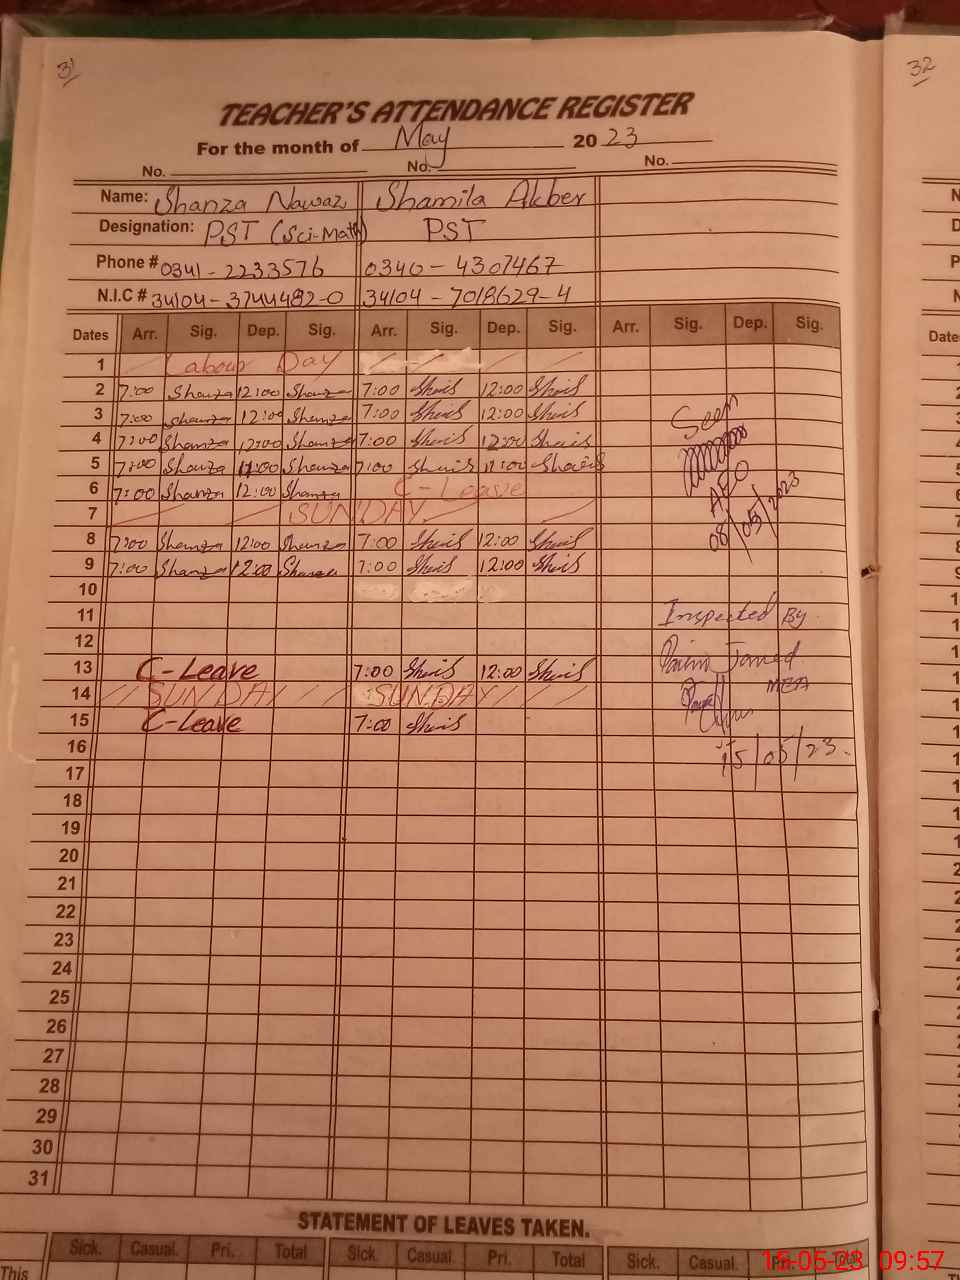 31
32
TEACHER'S ATTENDANCE REGISTER
For the month of May 2023
No. No. No.
Name: Shanza Nawaz Shamila Akber
Designation: PST (Sci-Math) PST
Phone # 0341-2233576 0340-4307467
N.I.C # 34104-3744482-0 34104-7018629-4
Dates Arr. Sig. Dep. Sig. Arr. Sig. Dep. Sig. Arr. Sig. Dep. Sig.
Date
1 Labour Day
2 7:00 Shanza 12:00 Shanza 7:00 12:00
3 7:00 Shanza 12:00 Shanza 7:00 12:00
Seen
4 7:00 Shanza 12:00 Shanza 7:00 12:00
5 7:00 Shanza 11:00 Shanza 7:00 11:00
AEO
6 7:00 Shanza 12:00 Shanza C-Leave
08/05/2023
7 SUNDAY
8 7:00 Shanza 12:00 Shanza 7:00 12:00
9 7:00 Shanza 12:00 Shanza 7:00 12:00
10
11 Inspected By
12
13 C-Leave 7:00 12:00
14 SUNDAY SUNDAY MEA
15 C-Leave 7:00
16 15/05/23.
17
18
19
20
21
22
23
24
25
26
27
28
29
30
31
STATEMENT OF LEAVES TAKEN.
Sick. Casual. Pri. Total Sick. Casual. Pri. Total Sick. Casual. Pri. Total
This
15-05-23 09:57